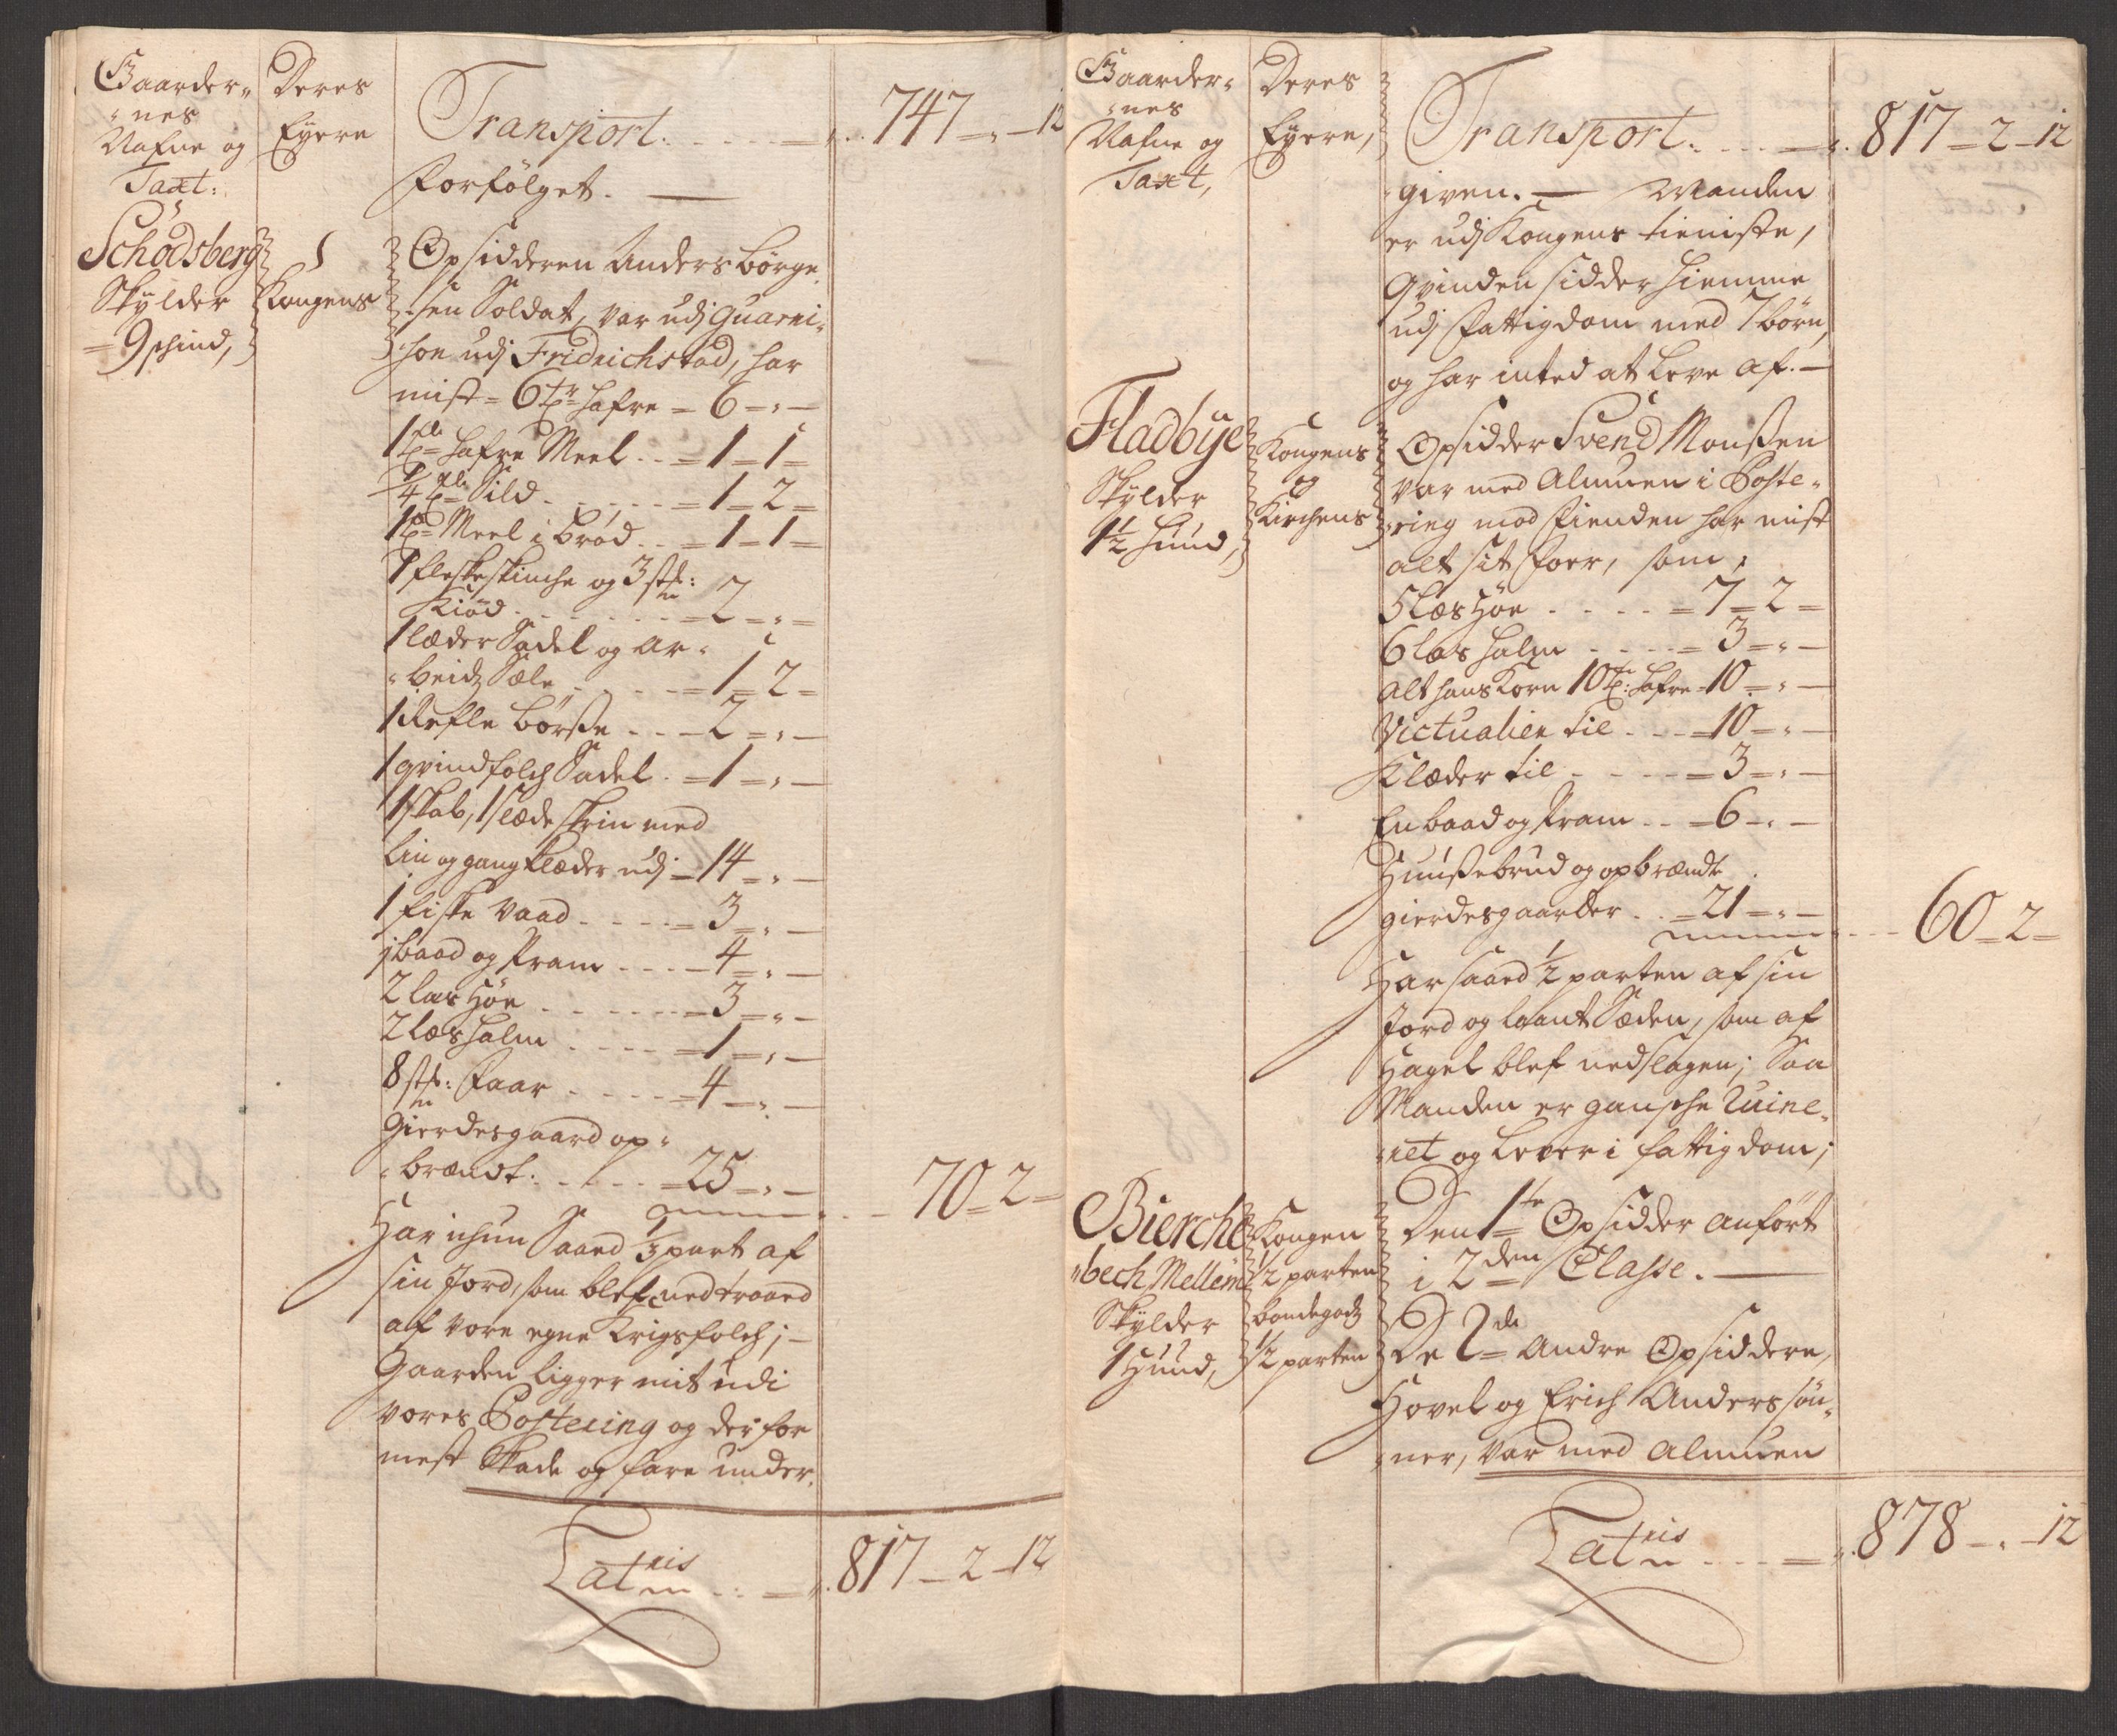 Gaarder-
-nes
Nafne og
Taxt:
Deres
Eyere
Transport. . . . . 747 - " - 12
forfölget. —
Schödsberg
Skylder
9 skind,
1
Kongens
Opsidderen Anders Börge-
-sen Soldat, var udj Guarni-
-son udj Fridrichstad, har
mist = 6 tr hafre = 6 - " -
1 td hafre Meel . . = 1 - 1 -
1/4 td Sild . . . . = 1 - 2 -
1 td Meel i bröd . . = 1 - 1 -
1 fleskeskinche og 3 stk:
Kiöd . . . . . = 2 - " -
1 læder Sadel og Ar-
-beidz Sæle . . . . = 1 - 2 -
1 Refle börsse . . . - 2 - " -
1 qvindfolch Sadel . = 1 - " -
1 skab, 1 slæde skrin med
lin og gangklæder udj = 14 - " -
1 fiske vaad . . . . = 3 - " -
1 baad og Pram . . . . - 4 - " -
2 læs Höe . . . . . - 3 - " -
2 læs halm . . . . = 1 - " -
8 stk: Faar . . . . = 4 - " -
Gierdesgaard op-
-brændt . . . . = 25 - " -
70 - 2 -
Har ichun Saaed 1/3 part af
sin Jord, som blef nedtraaed
af vore egne Krigsfolch; -
Gaarden ligger mit udi
vores Postering og derfor
mest skade og fare under-
Latris . . . 817 - 2 - 12
Gaarder-
-nes
Nafne og
Taxt,
Deres
Eyere,
Transport. . . . . 817 - 2 - 12
given. — Manden
er udj Kongens tieniste,
Qvinden sidder hiemme
udj Fattigdom med 7 börn,
og har inted at Leve af. -
Fladbye
Skylder
1 1/2 hund,
Kongens
og
Kirchens
Opsidder Svend Monssen
var med Almuen i Poste-
-ring mod Fienden har mist
alt sit foer, som,
5 læs Höe . . . . = 7 - 2 -
6 læs halm . . . . = 3 - " -
alt hans Korn 10 tr: hafre = 10 - " -
Victualier til . . . = 10 - " -
Klæder til . . . . = 3 - " -
En baad og Pram . . = 6 - " -
Huussebrud og opbrændte
gierdesgaarder . . = 21 - " -
60 - 2 -
Har saaed 1/2 parten af sin
Jord og laant Sæden, som af
Hagel blef nedslagen; Saa
Manden er gansche Ruine-
-ret og Lever i fattigdom;
Bierche
-bech Mellem
Skylder
1 Hund,
Kongen
1/2 parten
bondegodz
1/2 parten
Den 1te Opsidder anfört
i 2den Classe. —
De 2de andre Opsiddere,
Hovel og Erich Anderssön-
-ner, var med Almuen
Latris . . . 878 - " - 12